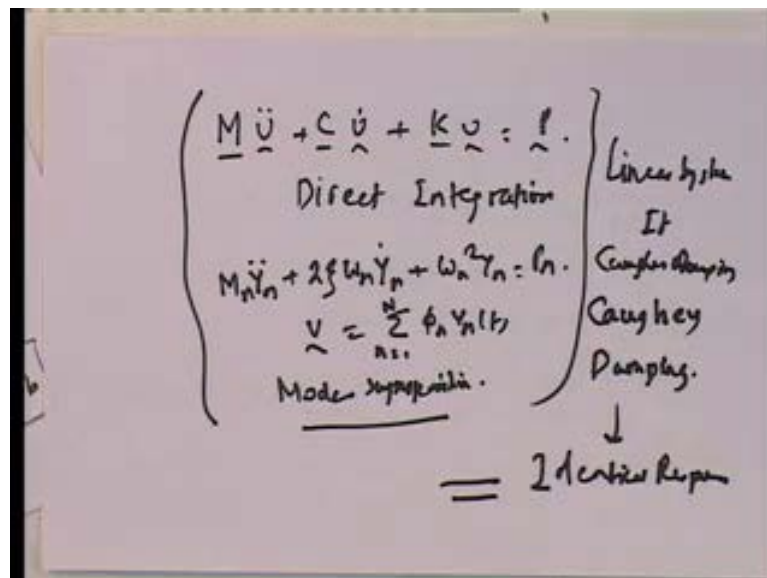 M ü + C u̇ + K u = P.
Direct Integration
MnŸn + 2ξωnẎn + ωn²Yn = Pn.
v = Σ ϕn Yn(t)
N
n=1
Modes superposition.
Linear System
If
Caughey Damping
Caughey
Damping.
↓
= Identical Respon